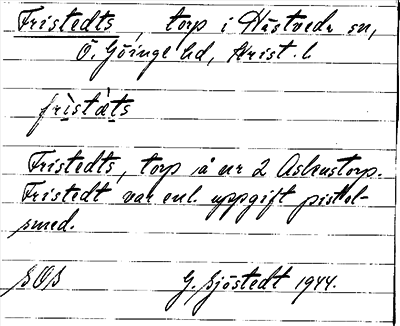 Fristedts, torp i Hästveda sn,
Ö. Göinge hd, Krist. l
frìstæ̀ts
Fristedts, torp å nr 2 Asbenstorp.
Fristedt var enl. uppgift pistol-
smed.
SOS G. Sjöstedt 1944.